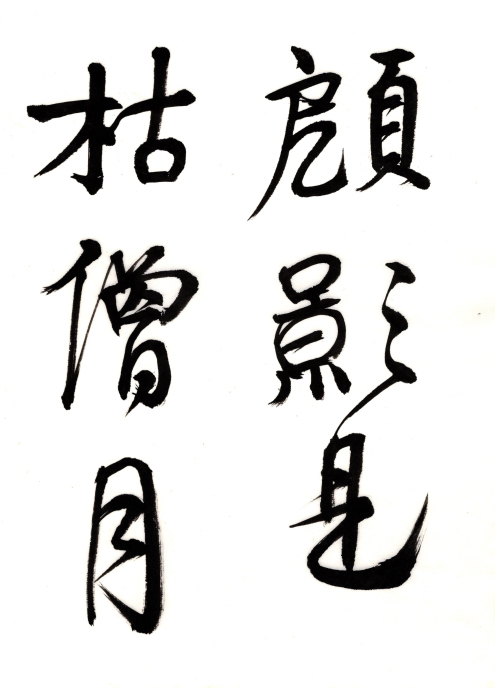 顧影是
枯僧月